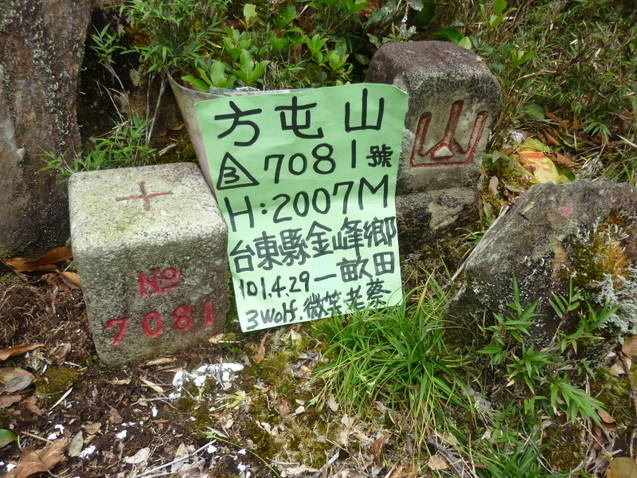 方屯山
△3 7081號
H:2007M
台東縣金峰鄉
101.4.29 一畝田
3Wolf. 微笑老蔡
+
NO
7081
山